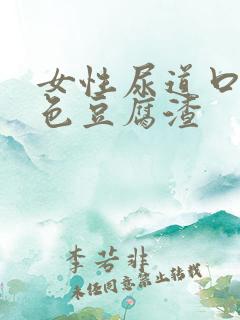 女性尿道口
色豆腐渣
李若非
未经同意禁止转载